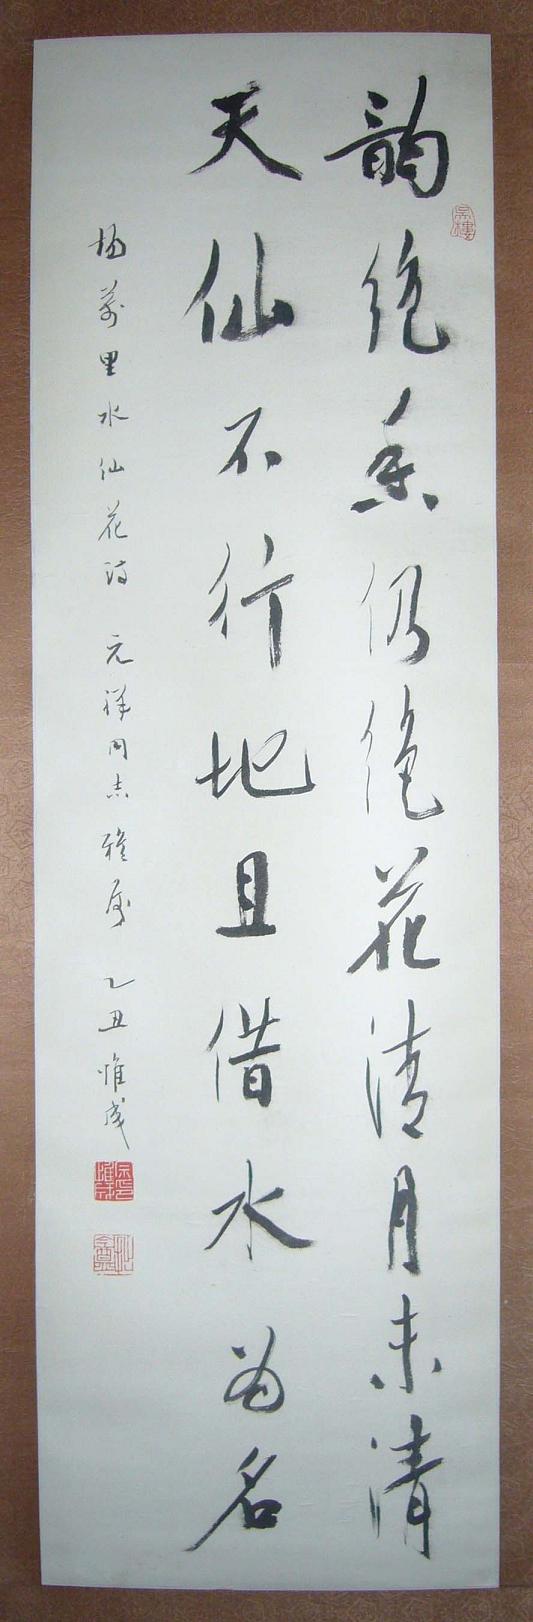 韵绝香仍绝花清月未清
天仙不行地且借水为名
杨万里水仙花诗 元祥同志雅属 乙丑惟成